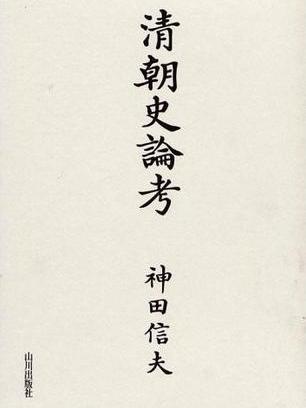 清朝史論考
神田信夫
山川出版社